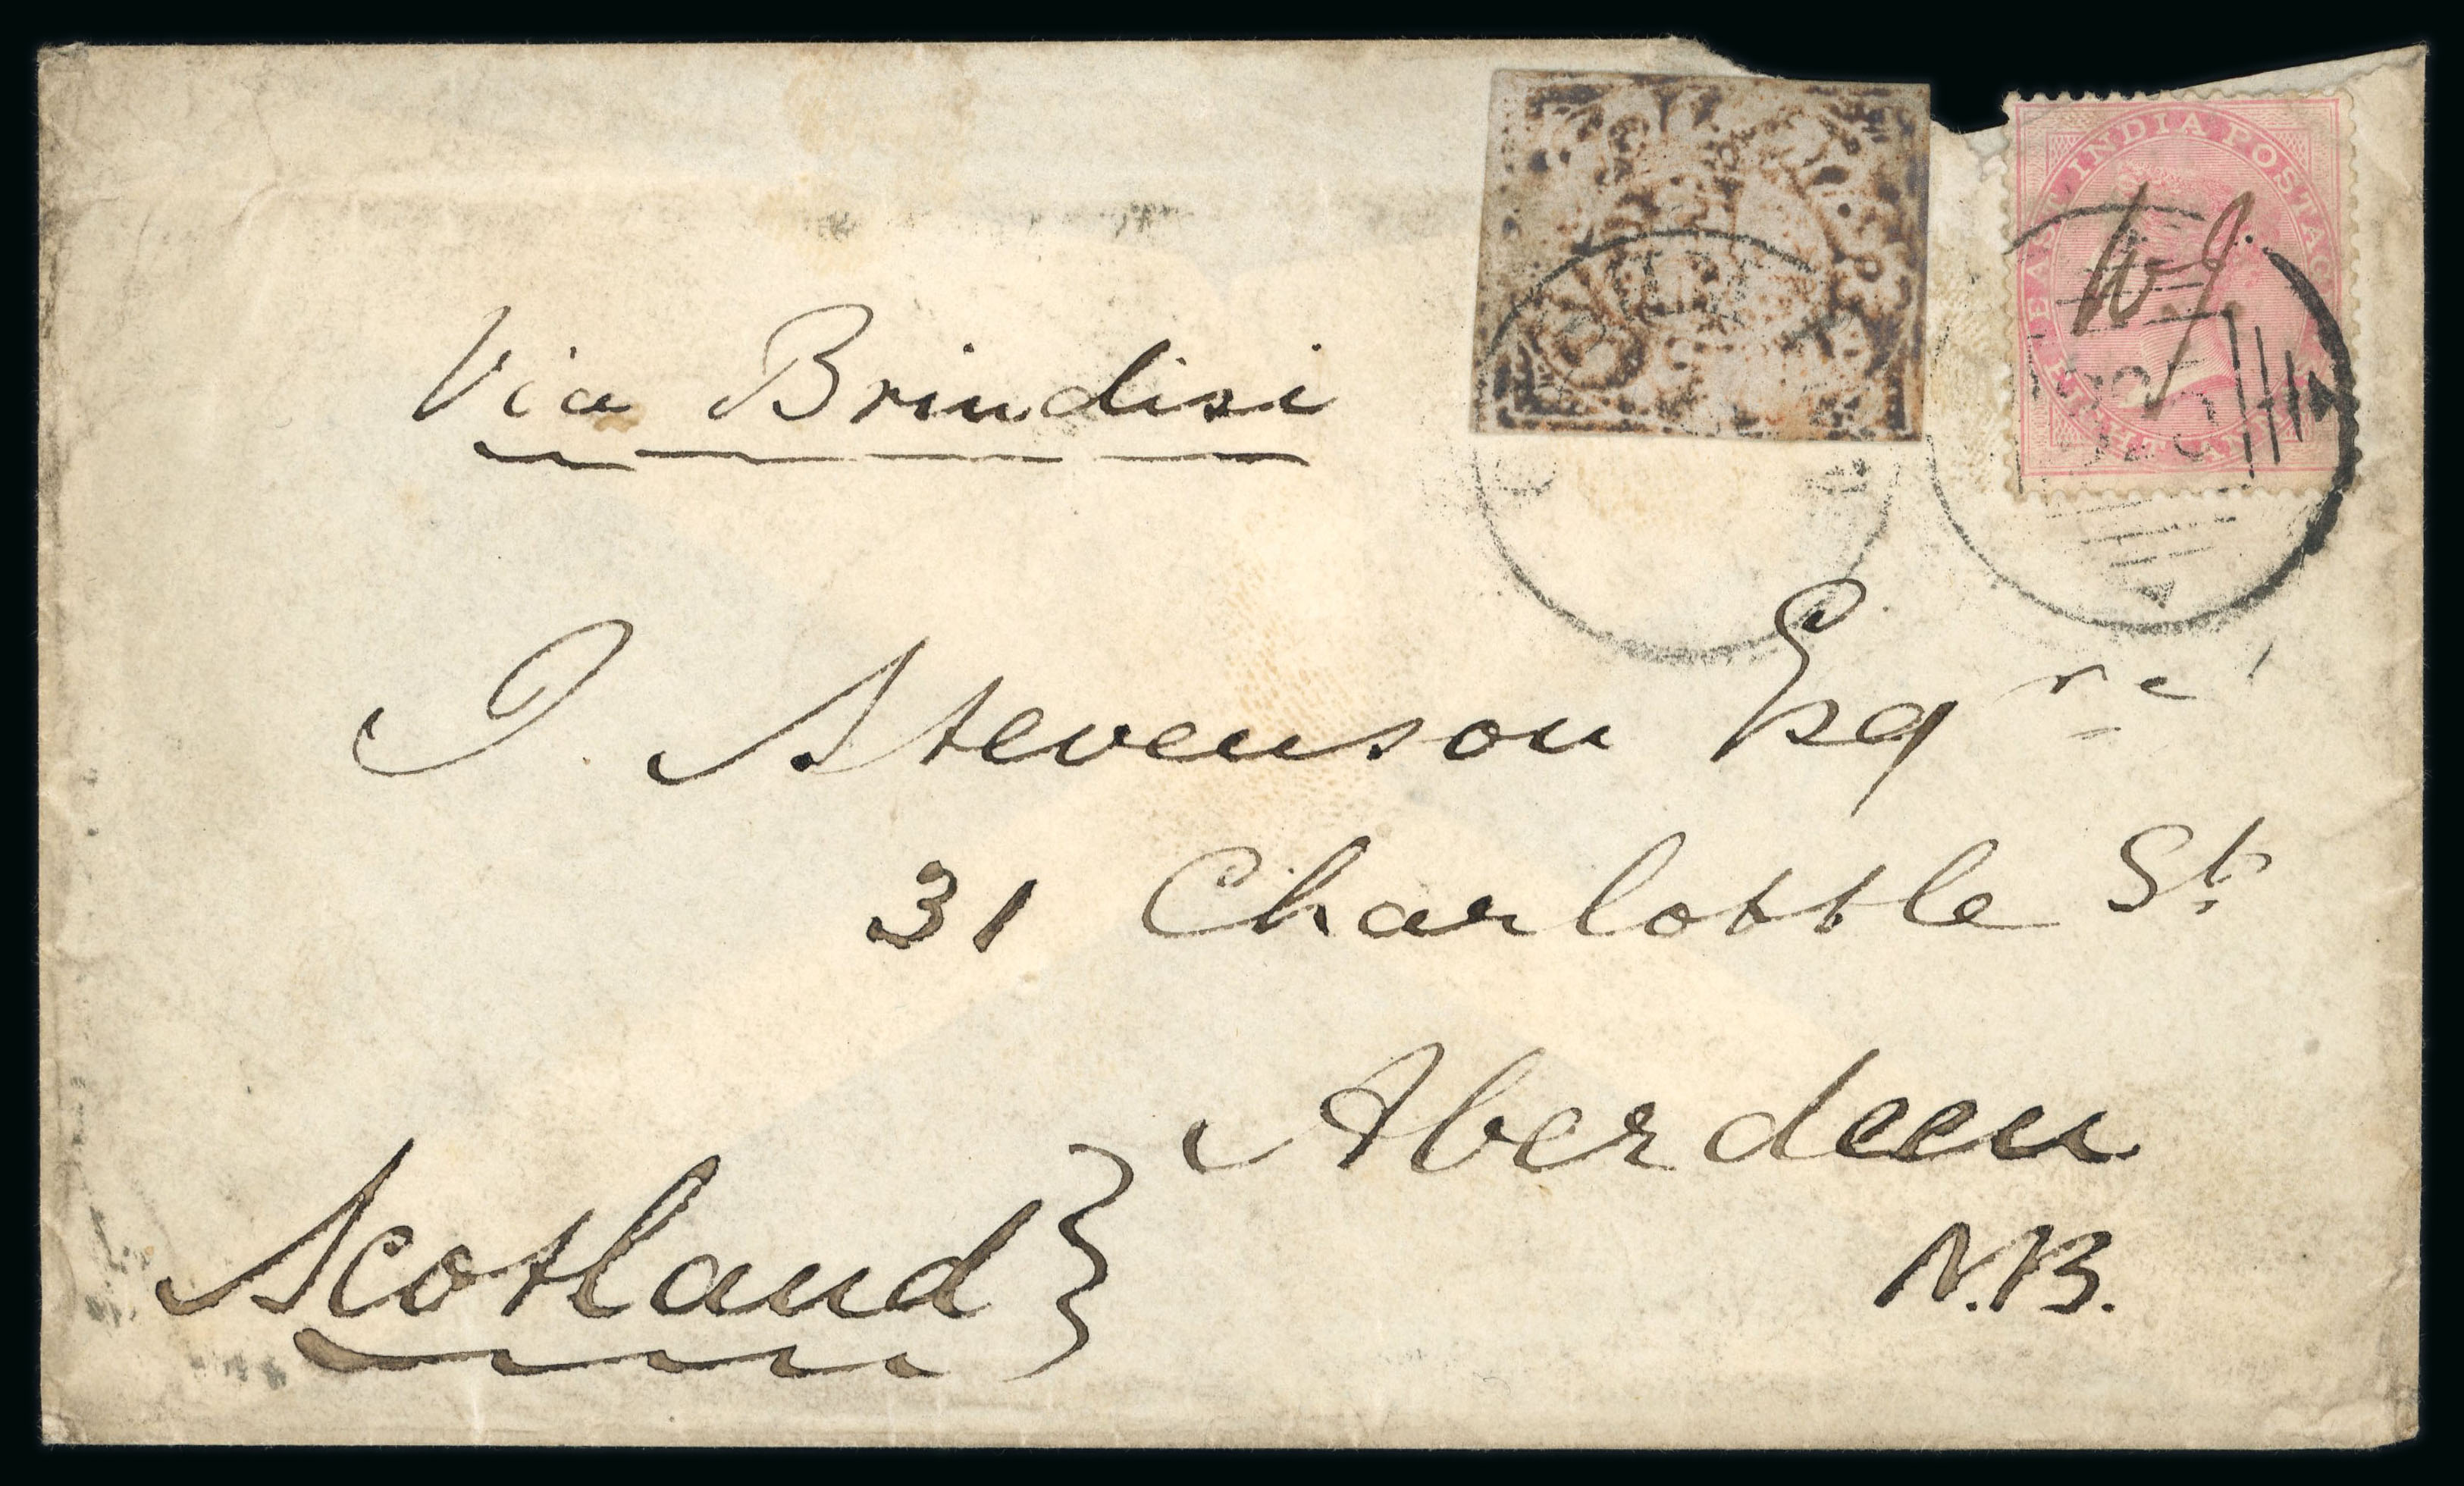 EAST INDIA POSTAGE
EIGHT ANNAS
Via Brindisi
J. Stevenson Esqre
31 Charlotte St.
Aberdeen
Scotland }
N.B.